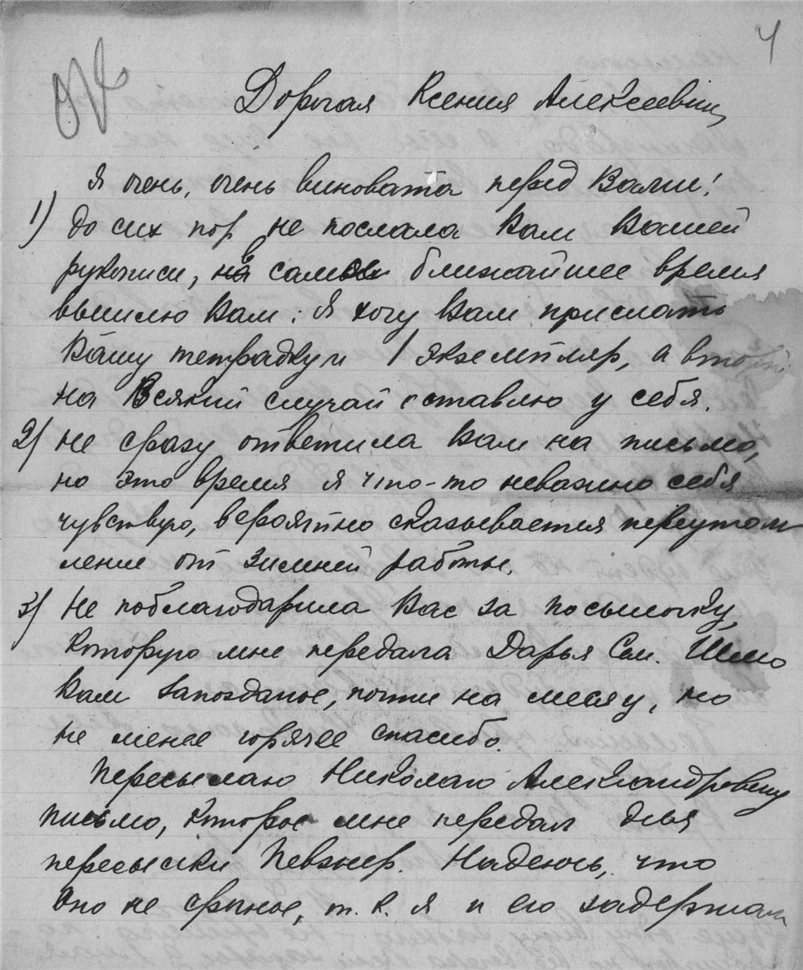 4
Дорогая Ксения Алексеевна,
Я очень, очень виновата перед Вами!
1) до сих пор не послала Вам Вашей
рукописи, на самое ближайшее время
вышлю Вам: Я хочу Вам прислать
Вашу тетрадку и 1 экземпляр, а второй
на всякий случай оставлю у себя.
2) не сразу ответила Вам на письмо,
но это время я что-то неважно себя
чувствую, вероятно сказывается переутом
ление от зимней работы.
3) Не поблагодарила Вас за посылочку,
которую мне передала Дарья Сем. Шлю
Вам запоздалое, почти на месяц, но
не менее горячее спасибо.
Пересылаю Николаю Александровичу
письмо, которое мне передал для
пересылки Певзнер. Надеюсь, что
оно не срочное, т. к. я и его задержала